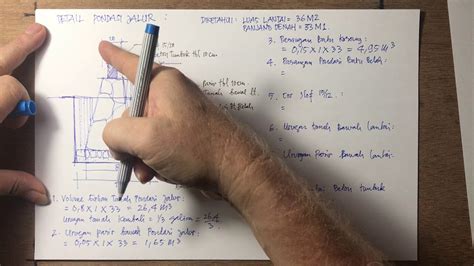 DETAIL PONDASI JALUR :
DIKETAHUI : LUAS LANTAI = 36 M2
PANJANG DENAH = 33 M1
15/20
tbl 10 cm
Pasir tbl 10 cm
Tanah
1. Volume Galian Tanah Pondasi Jalur :
= 0,8 X 1 X 33 = 26,4 M3
Urugan tanah kembali = 1/3 galian = 26,4/3
2. Urugan pasir bawah Pondasi Jalur :
= 0,05 X 1 X 33 = 1,65 M3
3. Pasangan Batu Kosong :
= 0,15 X 1 X 33 = 4,95 M3
4. Pasangan Pondasi Batu Belah :
=
5. Cor Sloof
=
6. Urugan tanah Bawah Lantai :
=
Urugan Pasir Bawah Lantai :
Beton tumbuk